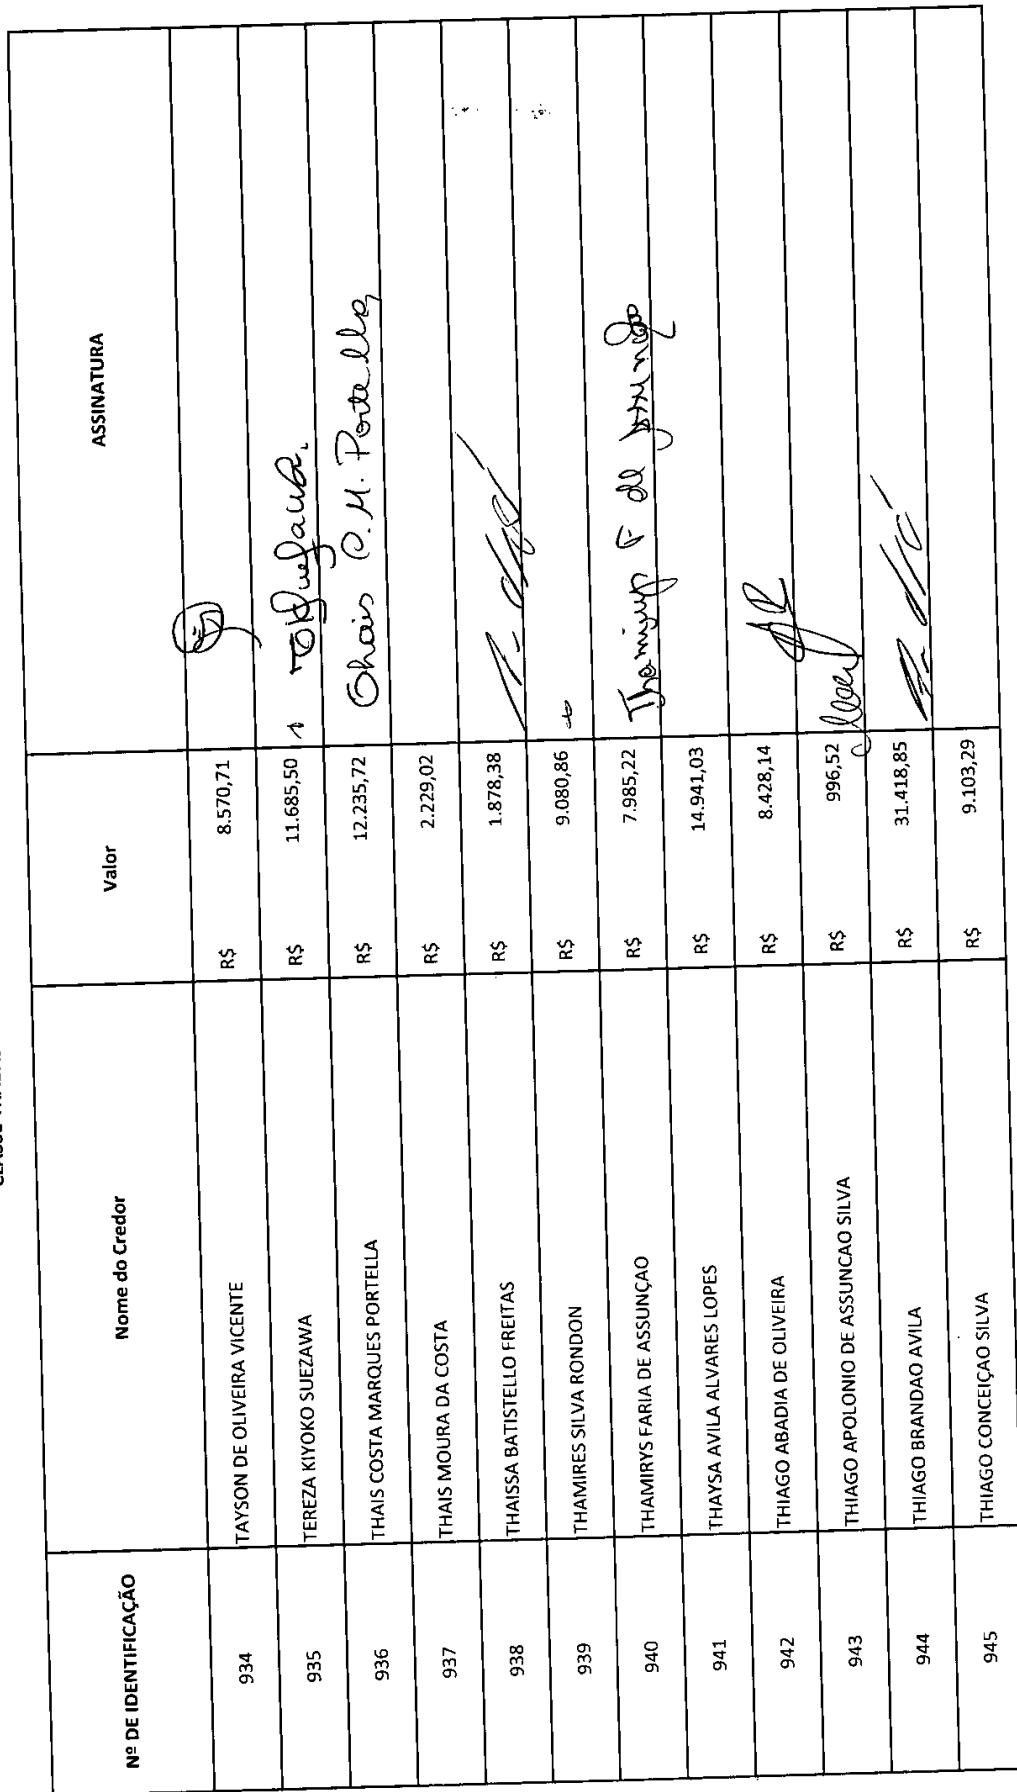 Nº DE IDENTIFICAÇÃO Nome do Credor Valor ASSINATURA
934 TAYSON DE OLIVEIRA VICENTE R$ 8.570,71
935 TEREZA KIYOKO SUEZAWA R$ 11.685,50
936 THAIS COSTA MARQUES PORTELLA R$ 12.235,72 Thais C. M. Portella
937 THAIS MOURA DA COSTA R$ 2.229,02
938 THAISSA BATISTELLO FREITAS R$ 1.878,38
939 THAMIRES SILVA RONDON R$ 9.080,86
940 THAMIRYS FARIA DE ASSUNÇAO R$ 7.985,22 Thamirys F de Assunção
941 THAYSA AVILA ALVARES LOPES R$ 14.941,03
942 THIAGO ABADIA DE OLIVEIRA R$ 8.428,14
943 THIAGO APOLONIO DE ASSUNCAO SILVA R$ 996,52
944 THIAGO BRANDAO AVILA R$ 31.418,85
945 THIAGO CONCEIÇAO SILVA R$ 9.103,29